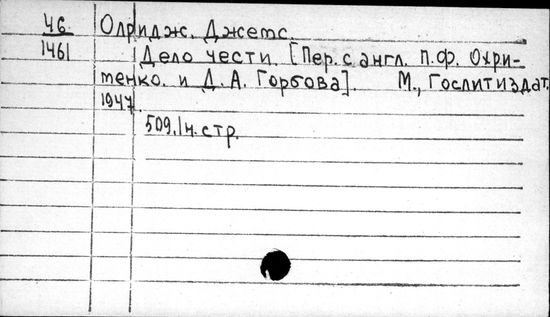 46 Олридж. Джемс.
1461 Дело чести. [Пер. с англ. П.Ф. Охри-
тенко. и Д.А. Горбова]. М., Гослитиздат,
1947.
509.1н.стр.